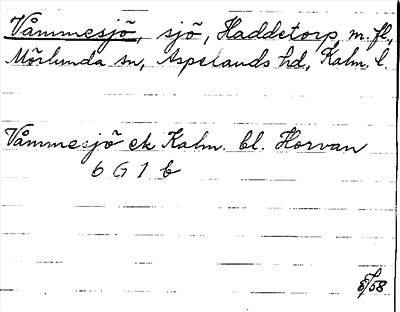 Våmmesjö, sjö, Haddetorp m.fl.,
Mörlunda sn, Aspelands hd, Kalm. l.
Våmmesjö ek Kalm. bl. Horvan
6 G 1 b
58